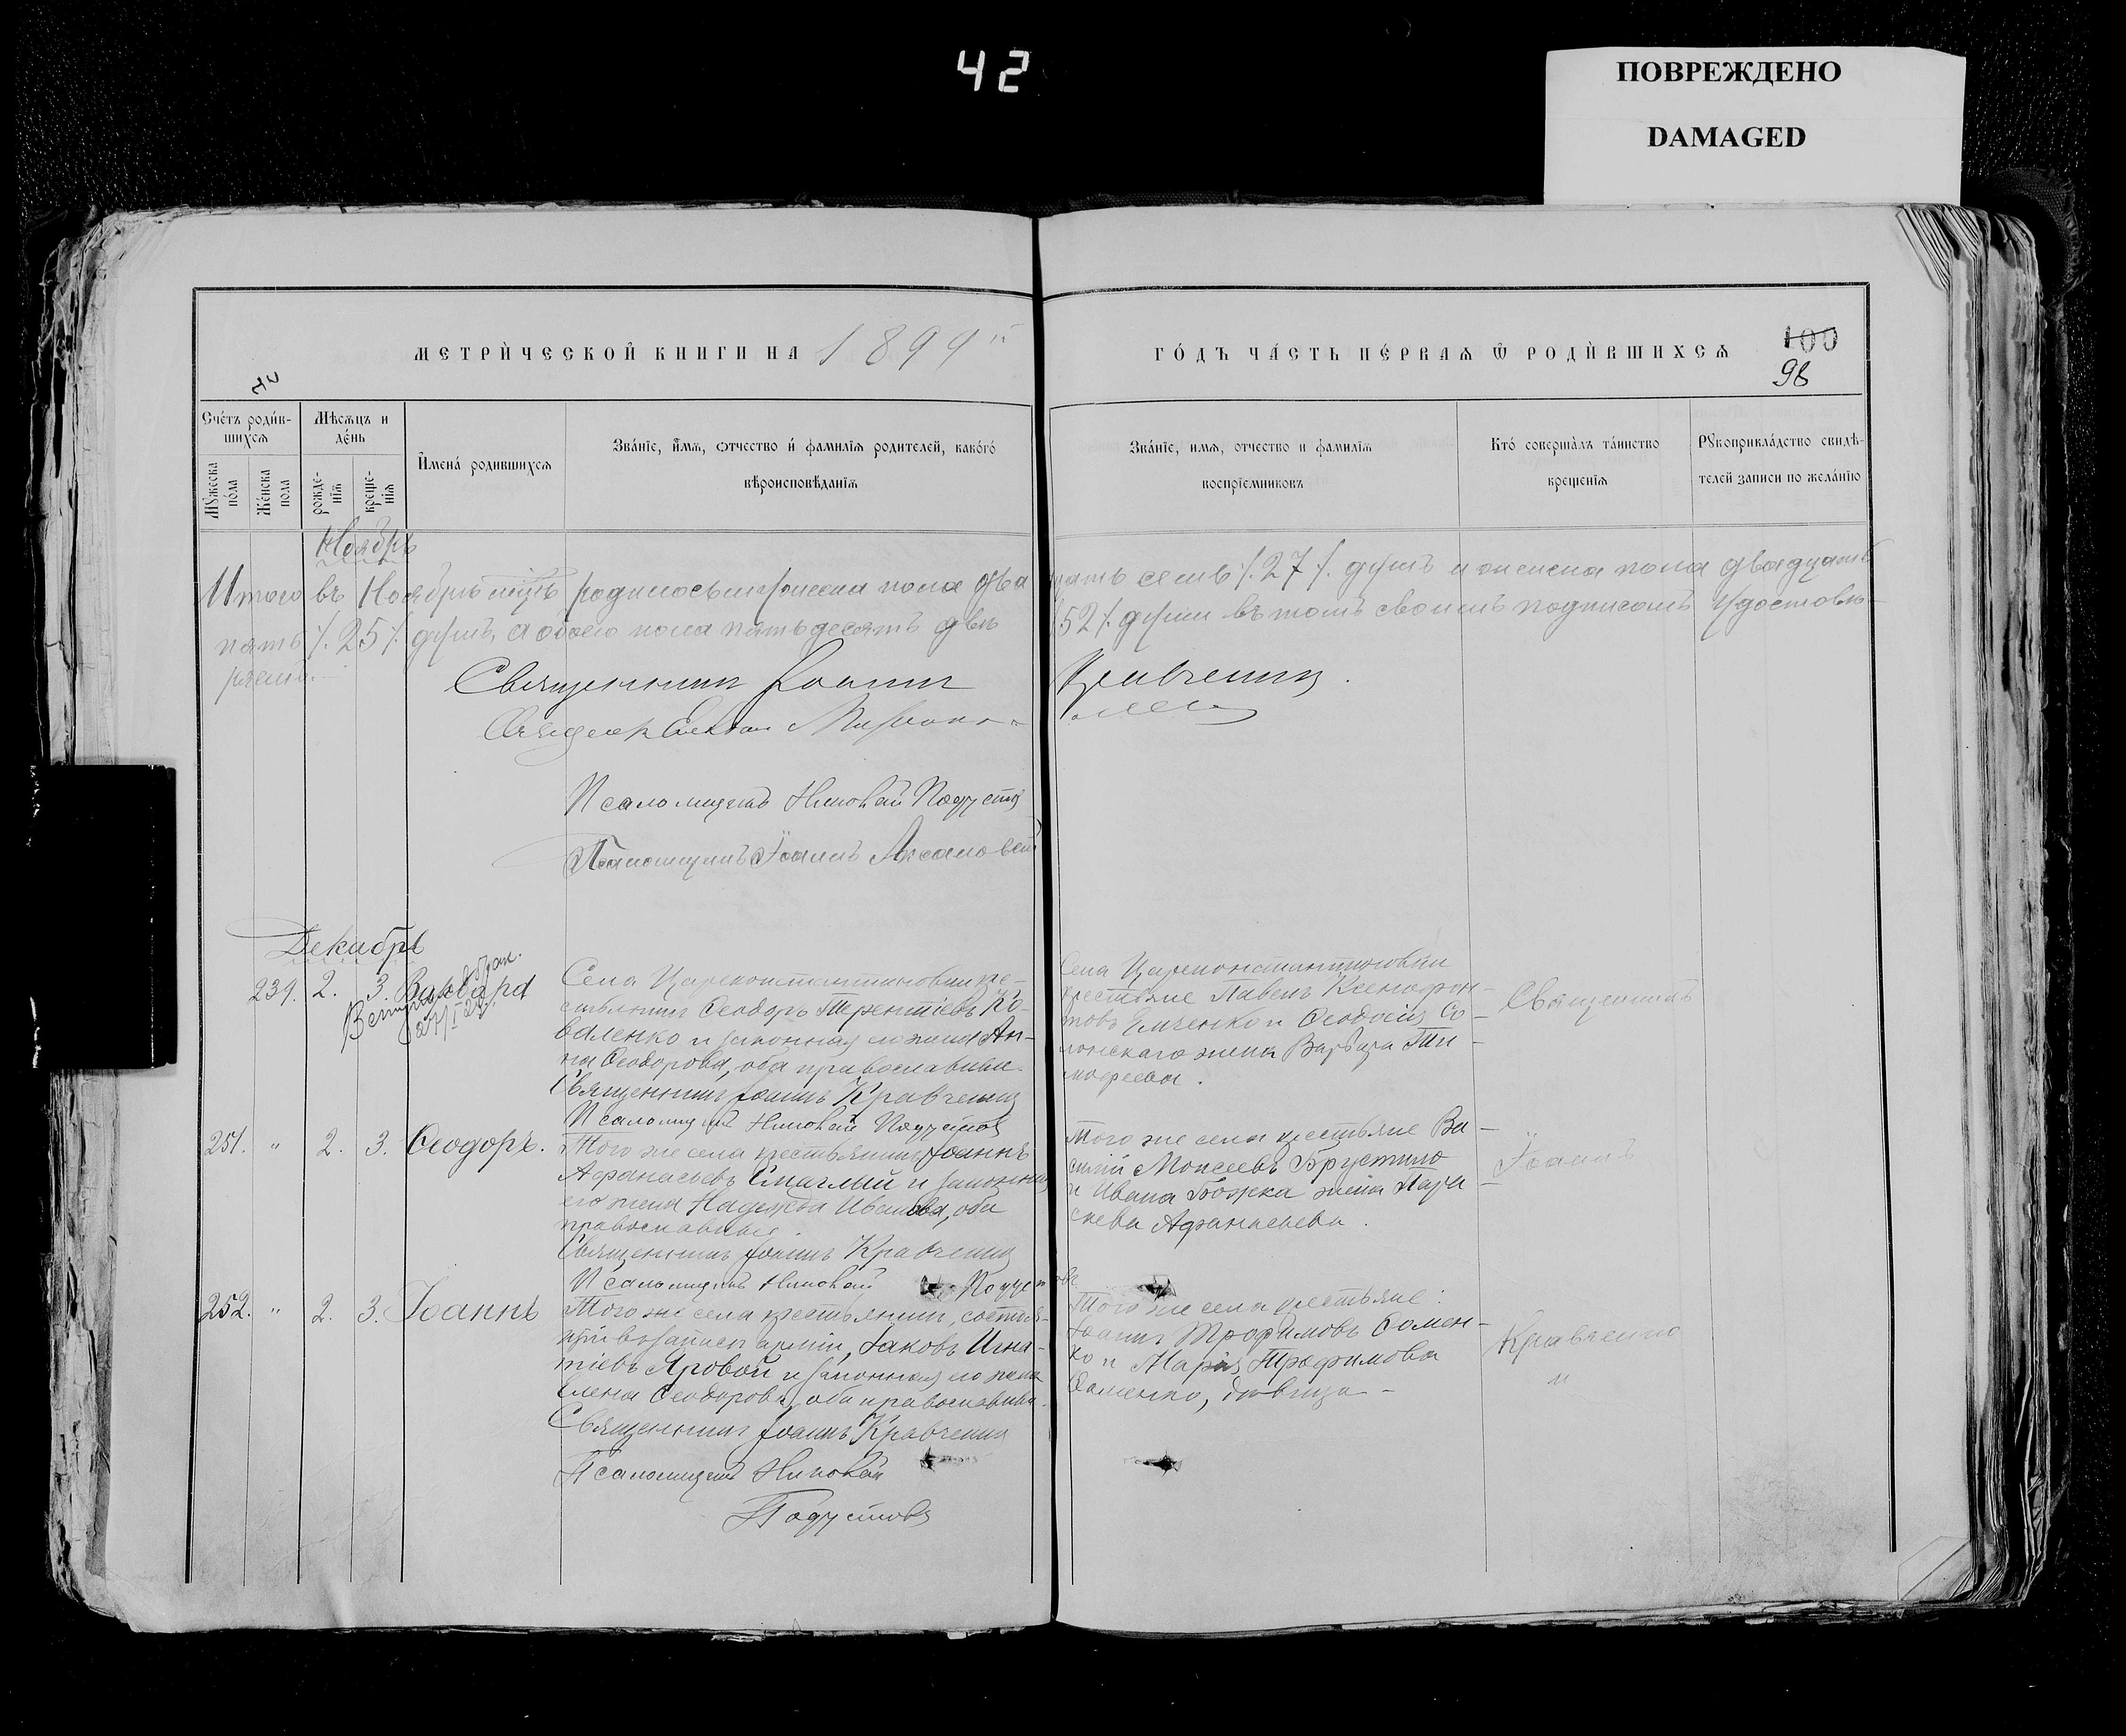 42
ПОВРЕЖДЕНО
DAMAGED
МЕТРИ́ЧЕСКОЙ КНИГИ НА 1899й
ГО́ДЪ ЧА́СТЬ ПЕ́РВАѦ Ѿ РОДИ́ВШИХСѦ
100
98
Сче́тъ роди́в-
шихсѧ
Мѣсѧцъ и
де́нь
И҆мена̀ родившихсѧ
Зва́нїе, и҆́мѧ, ѻтчество и҆ фамилїѧ родителей, како́гѡ
вѣроисповѣданїѧ
Мꙋжеска
по́ла
Же́нска
пола
рожде-
нїѧ
креще-
нїѧ
Зва́нїе, имѧ, отчество и фамилїѧ
воспрїемниковъ
Кто̀ соверша́лъ та́инство
крещенїѧ
Рꙋкоприкла́дство свидѣ-
телей записи по жела́нїю
Ноябрь
Итого въ Ноябрѣ мѣсяцѣ родилось мужеска пола два
дцать семь /.27/. душъ и женска пола двадцать
пять /.25/. душъ, а обоего пола пятьдесятъ двѣ
/52/. души въ томъ своимъ подписомъ удостовѣ-
ряемъ.
Священникъ Іоаннъ
Кравченко.
Псаломщикъ Николай Подустовъ
Псаломщикъ Іоаннъ
Декабрь
239. 2. 3. Варвара
Села Цареконстантиновки кре-
стьянинъ Ѳеодоръ Терентіевъ Ко-
валенко и законная его жена Ан-
на Ѳеодорова, оба православные.
Священникъ Іоаннъ Кравченко
Псаломщикъ Николай Подустовъ
Села Цареконстантиновки
крестьяне Павелъ Ксенофон-
товъ Емченко и Ѳеодосія Со-
лонскаго жена Варвара Ти-
мофеева.
Священникъ
251. " 2. 3. Ѳеодоръ.
Того же села крестьянинъ Іоаннъ
Аѳанасьевъ Смаглый и законная
его жена Надежда Иванова, оба
православные.
Священникъ Іоаннъ Кравченко
Псаломщикъ Николай Подустовъ
Того же села крестьяне Ва-
силій Моисеевъ Брустило
и Ивана Божка жена Пара-
скева Аѳанасьева.
Іоаннъ
252. " 2. 3. Іоаннъ
Того же села крестьянинъ, состоя-
щій въ запасѣ арміи, Іаковъ Игна-
тіевъ Яровой и законная его жена
Елена Ѳеодорова, оба православные.
Священникъ Іоаннъ Кравченко
Псаломщикъ Николай
Подустовъ
Того же села крестьяне:
Іоаннъ Трофимовъ Ѳомен-
ко и Марія Трофимова
Ѳоменко, дѣвица -
Кравченко
"